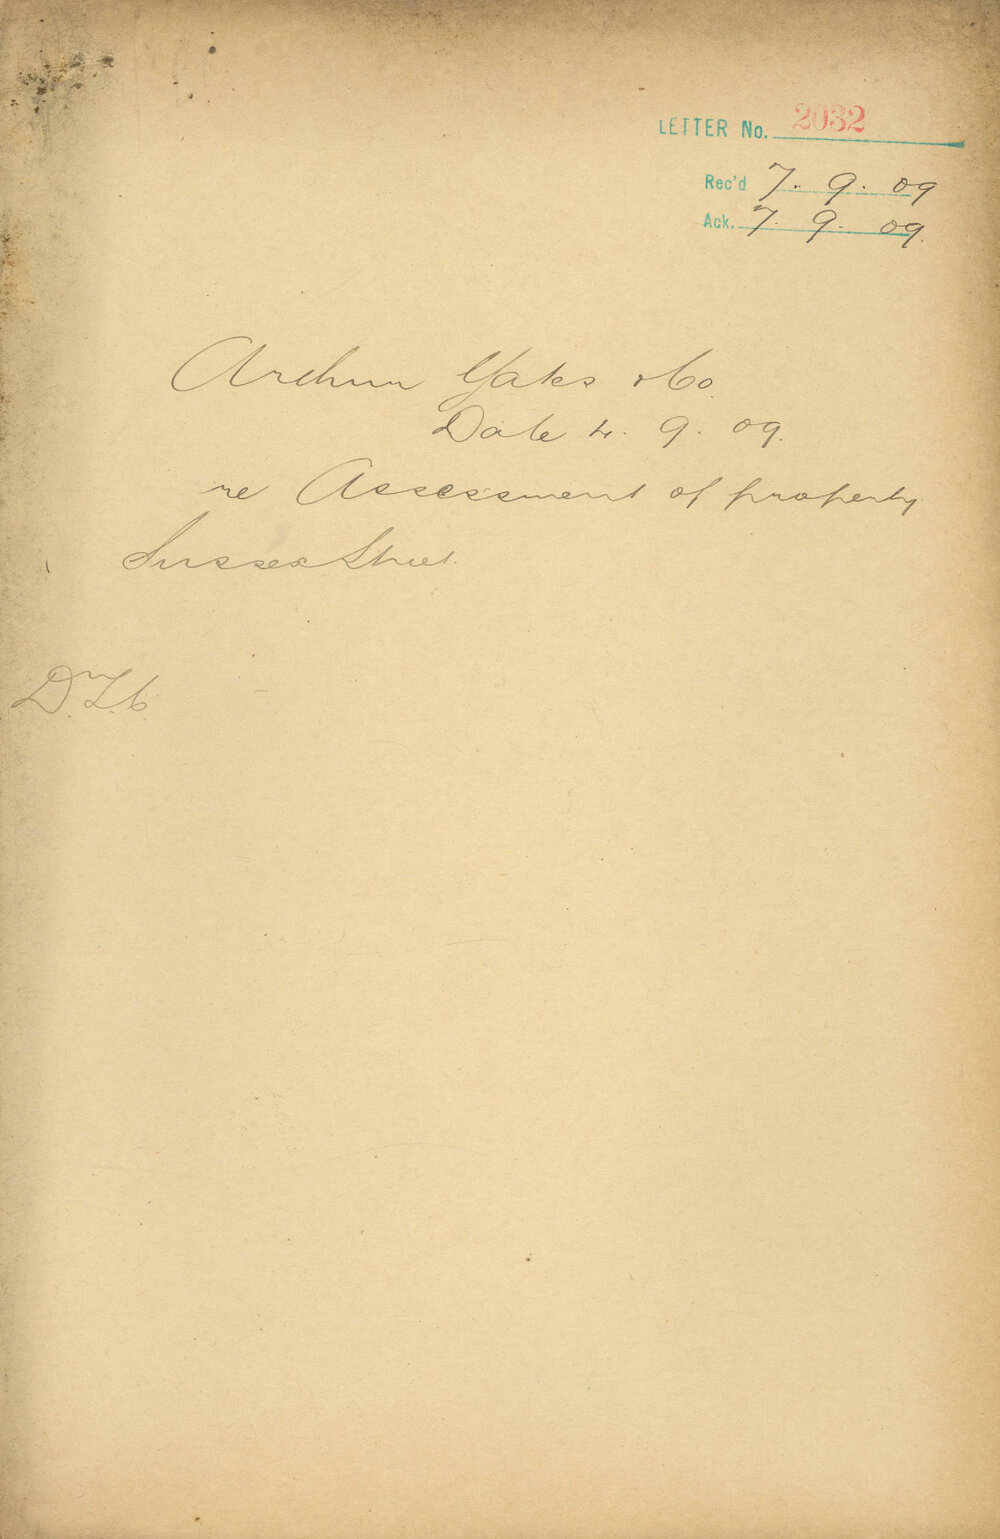 LETTER No. 2032
Rec'd 7. 9. 09
Ack. 7. 9. 09.
Arthur Yates & Co.
Date 4. 9. 09.
re Assessment of property
Sussex Street.